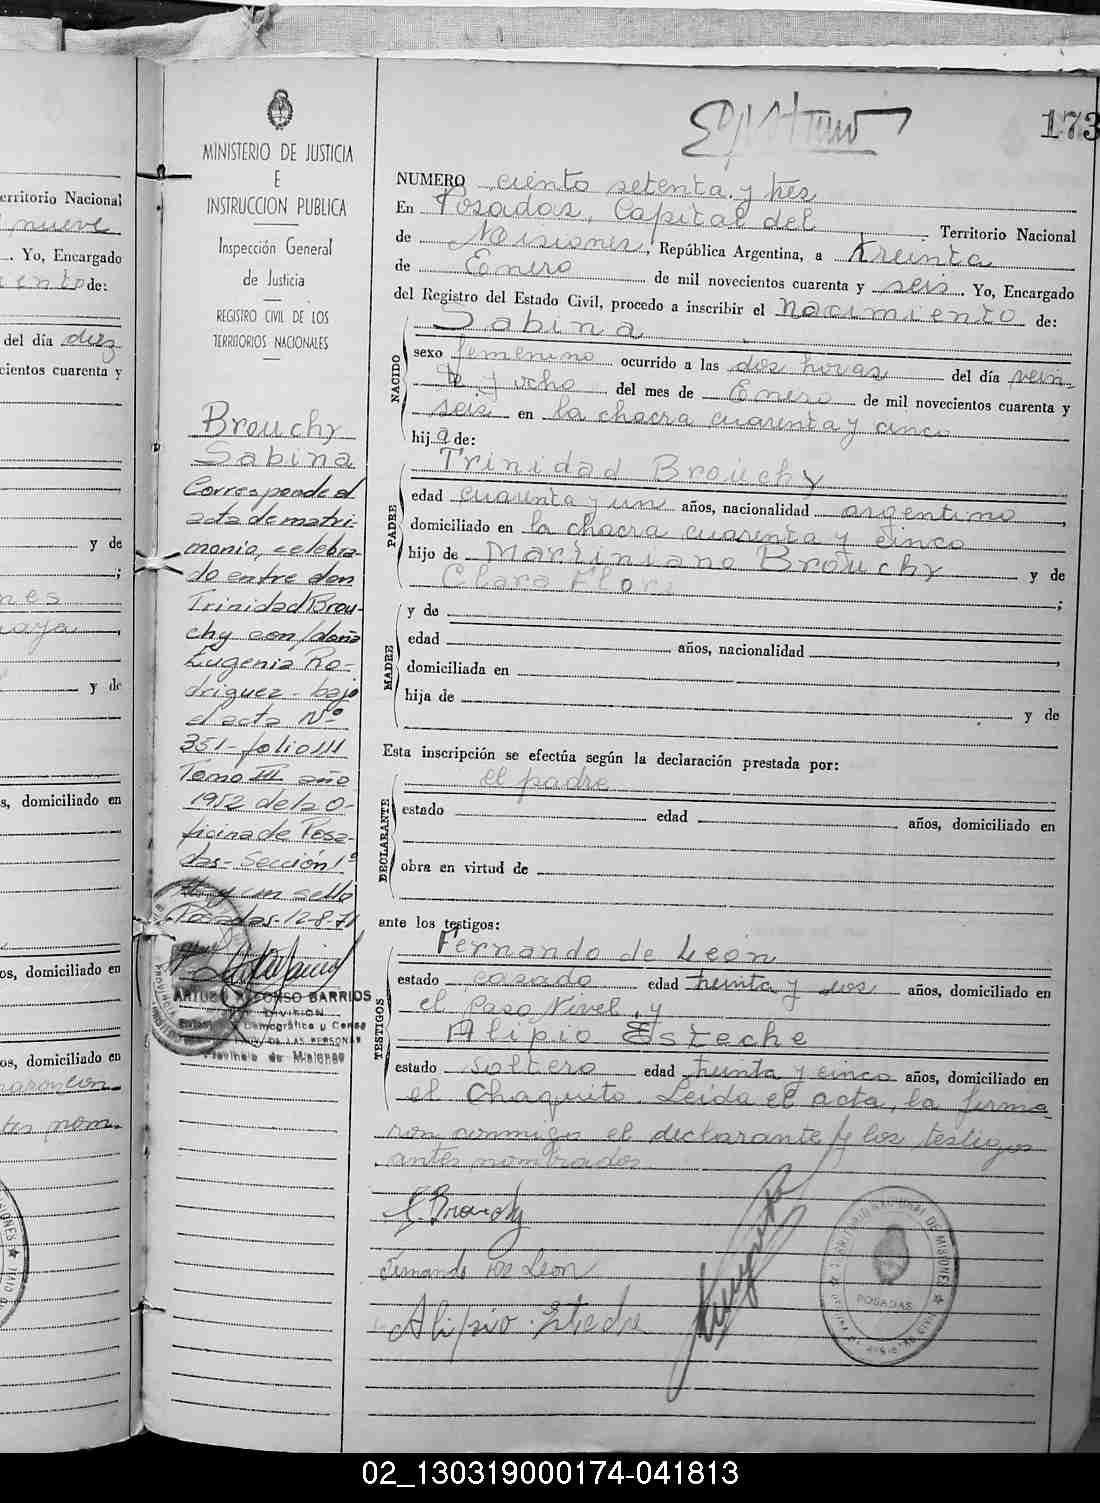 erritorio Nacional
nueve
Yo, Encargado
iento de:
del día diez
cientos cuarenta y
y de
;
nes
,
y de
s, domiciliado en
os, domiciliado en
os, domiciliado en
maron con
tes nom-
MINISTERIO DE JUSTICIA
E
INSTRUCCION PUBLICA
Inspección General
de Justicia
REGISTRO CIVIL DE LOS
TERRITORIOS NACIONALES
Brouchy
Sabina
Corresponde al
acta de matri-
monio, celebra-
do entre don
Trinidad Brou-
chy con doña
Eugenia Ro-
driguez - bajo
el acta Nº
351 - folio 111
Tomo III año
1952 de la O-
ficina de Posa-
das - Sección 1º
Hay un sello
Posadas - 12-8-71
ARTURO ALFONSO BARRIOS
DIVISION
Demográfica y Censo
DE LAS PERSONAS
Provincia de Misiones
173
NUMERO ciento setenta y tres
En Posadas, Capital del Territorio Nacional
de Misiones, República Argentina, a treinta
de Enero de mil novecientos cuarenta y seis. Yo, Encargado
del Registro del Estado Civil, procedo a inscribir el nacimiento de:
NACIDO
Sabina
sexo femenino ocurrido a las dos horas del día vein-
te y ocho del mes de Enero de mil novecientos cuarenta y
seis en la chacra cuarenta y cinco
hija de:
PADRE
Trinidad Brouchy
edad cuarenta y un años, nacionalidad argentino,
domiciliado en la chacra cuarenta y cinco
hijo de Martiniano Brouchy y de
Clara Flor ;
MADRE
y de
edad años, nacionalidad ,
domiciliada en
hija de y de
Esta inscripción se efectúa según la declaración prestada por:
DECLARANTE
el padre
estado edad años, domiciliado en
obra en virtud de
ante los testigos:
TESTIGOS
Fernando de Leon
estado casado edad treinta y dos años, domiciliado en
el Paso Nivel, y
Alipio Esteche
estado soltero edad treinta y cinco años, domiciliado en
el Chaquito. Leida el acta, la firma
ron conmigo el declarante y los testigos
antes nombrados.
Brouchy
Fernando de Leon
Alipio Esteche
TERRITORIO NACIONAL DE MISIONES
POSADAS
02_130319000174-041813